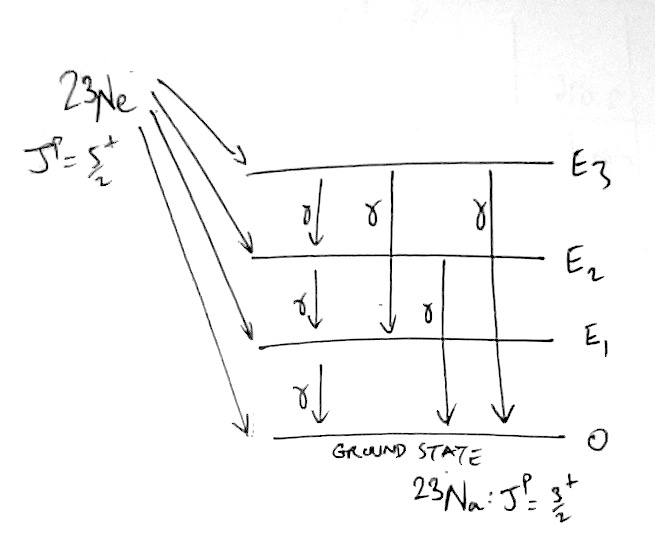 23Ne
J^P = 5/2^+
E3
γ γ γ
E2
γ γ
E1
γ
0
GROUND STATE
23Na: J^P = 3/2^+